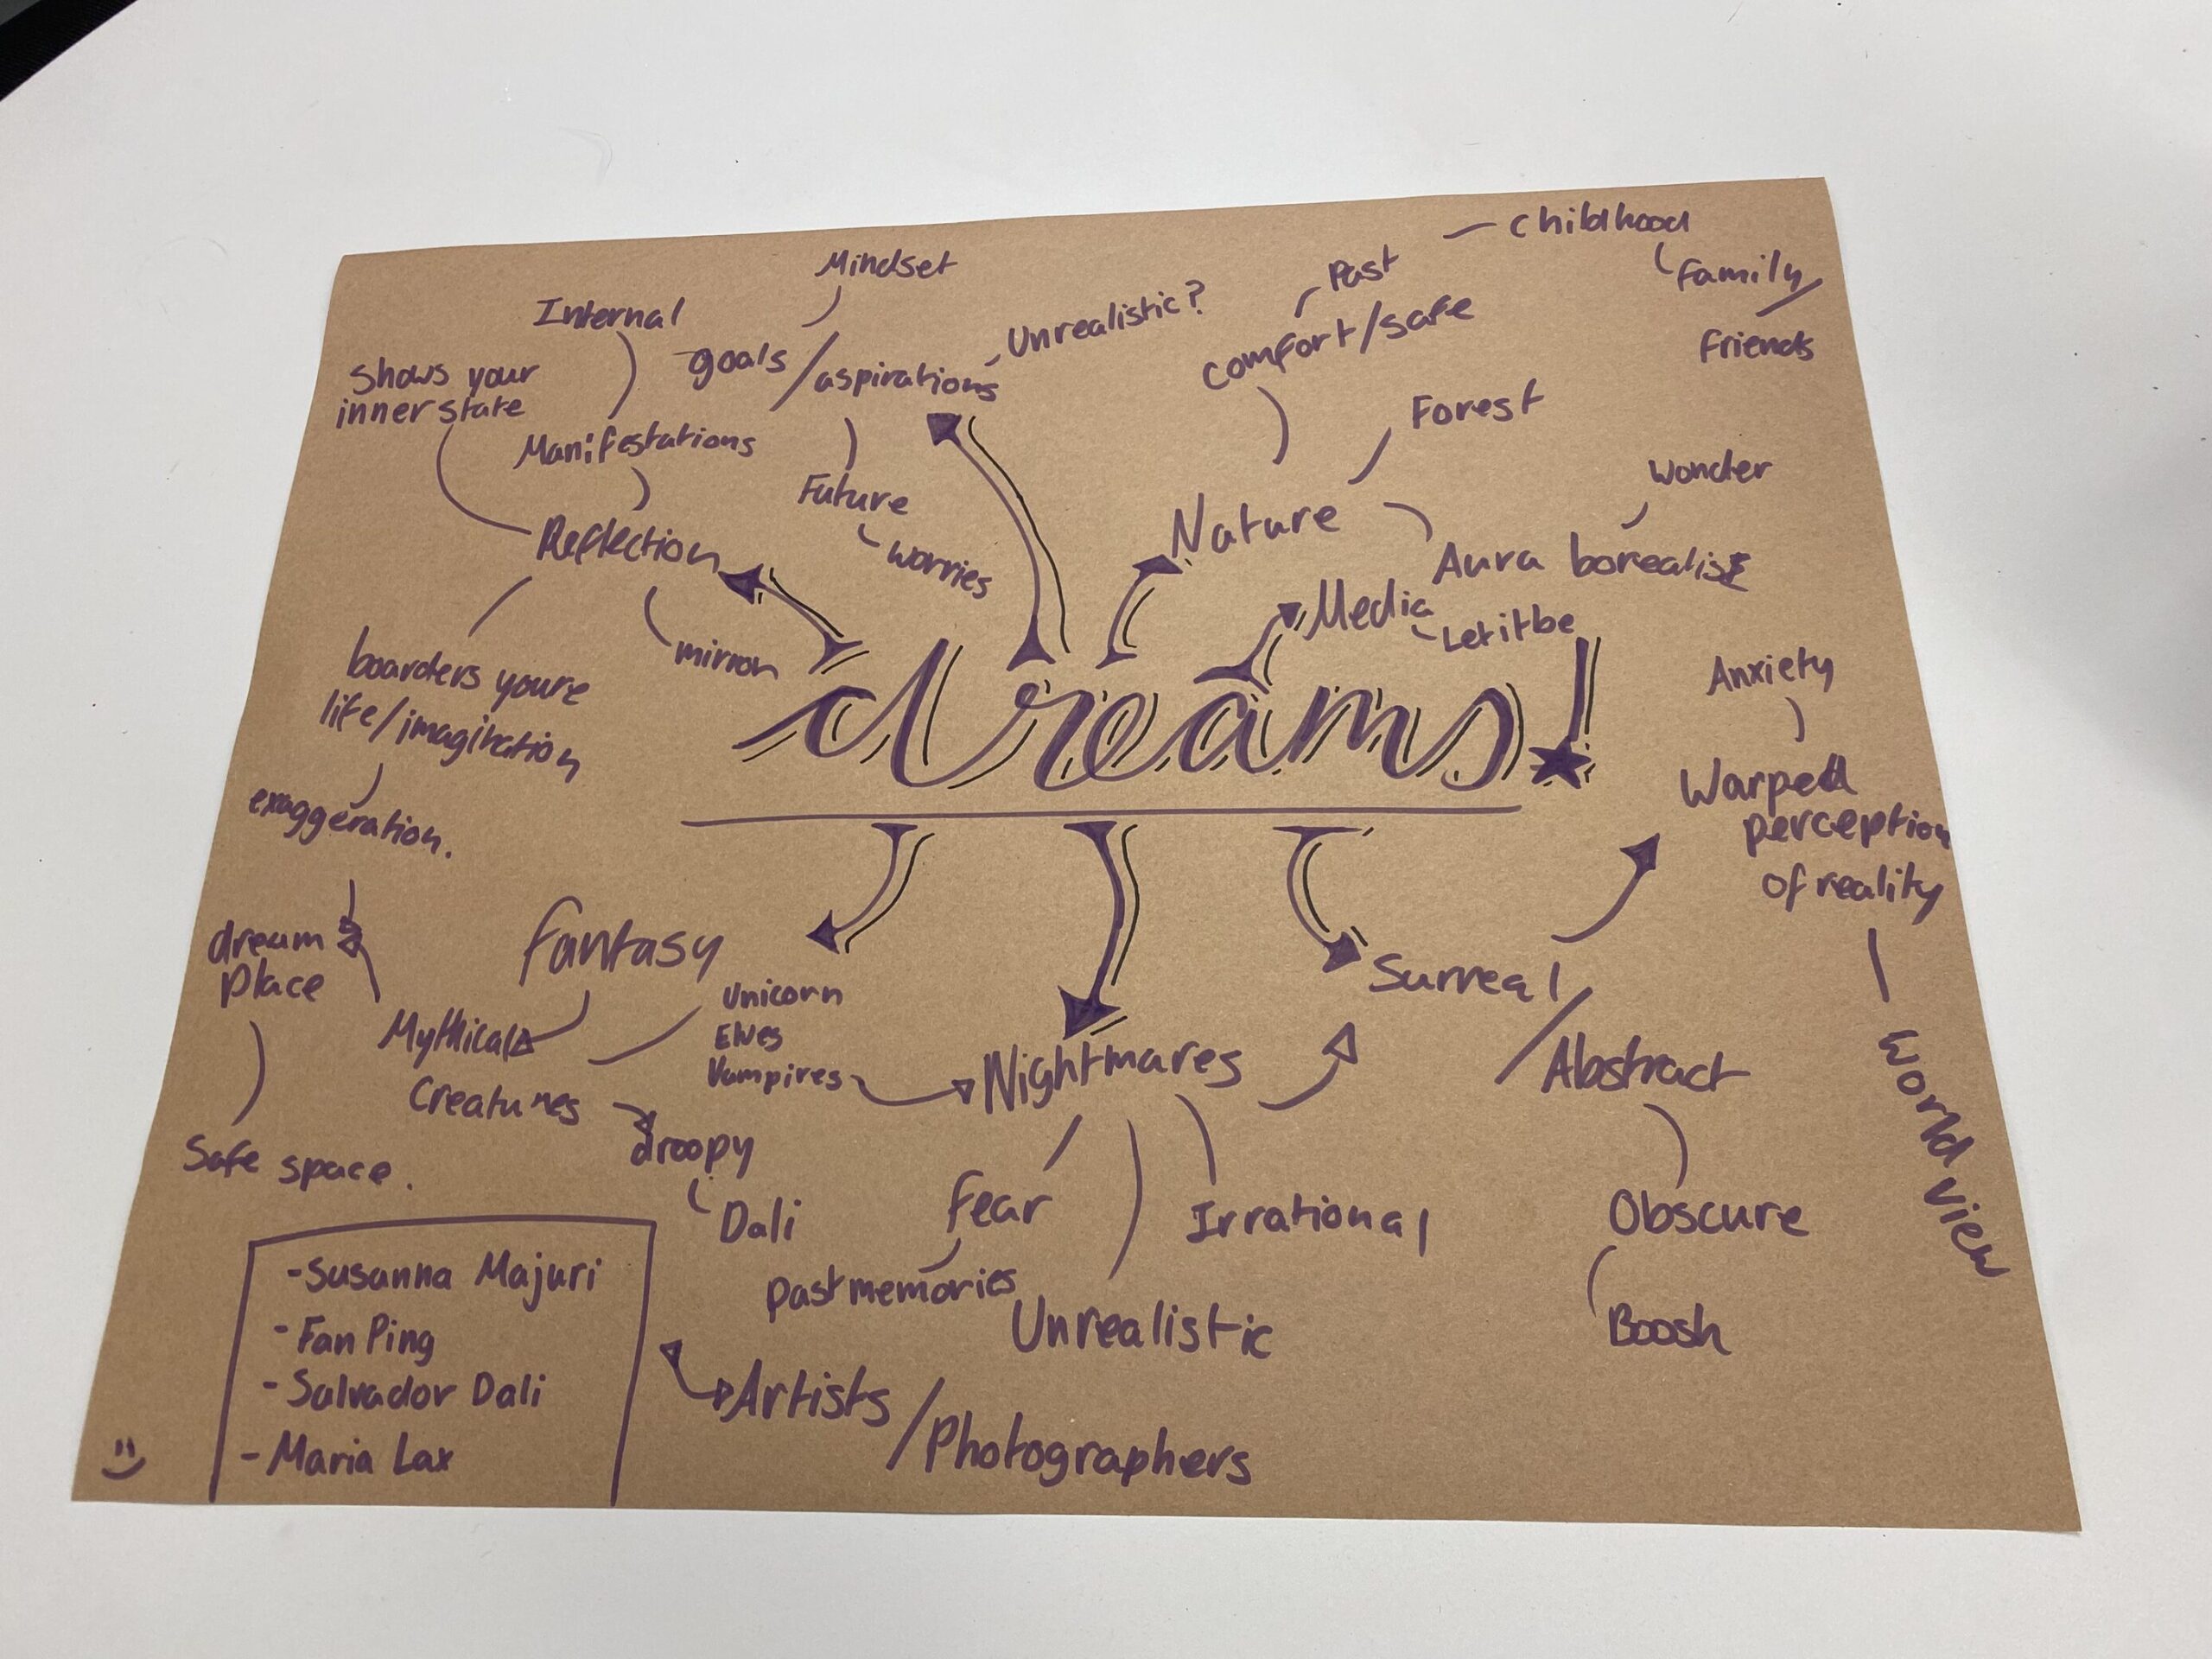 childhood
Past
family/
friends
Mindset
Internal
Unrealistic?
comfort/safe
goals/
aspirations
shows your
inner state
Forest
Manifestations
Wonder
Future
Nature
Reflection
worries
Aura borealis
Media
Let it be
mirror
boarders youre
life/imagination
Anxiety
dreams!
Warped
perception
of reality
exaggeration.
World view
fantasy
dream
place
Surreal/
Abstract
Unicorn
Elves
Vampires
Mythical
Creatures
Nightmares
droopy
Dali
Safe space.
fear
Irrational
Obscure
past memories
Unrealistic
Boosh
-Susanna Majuri
-Fan Ping
-Salvador Dali
-Maria Lax
Artists
/Photographers